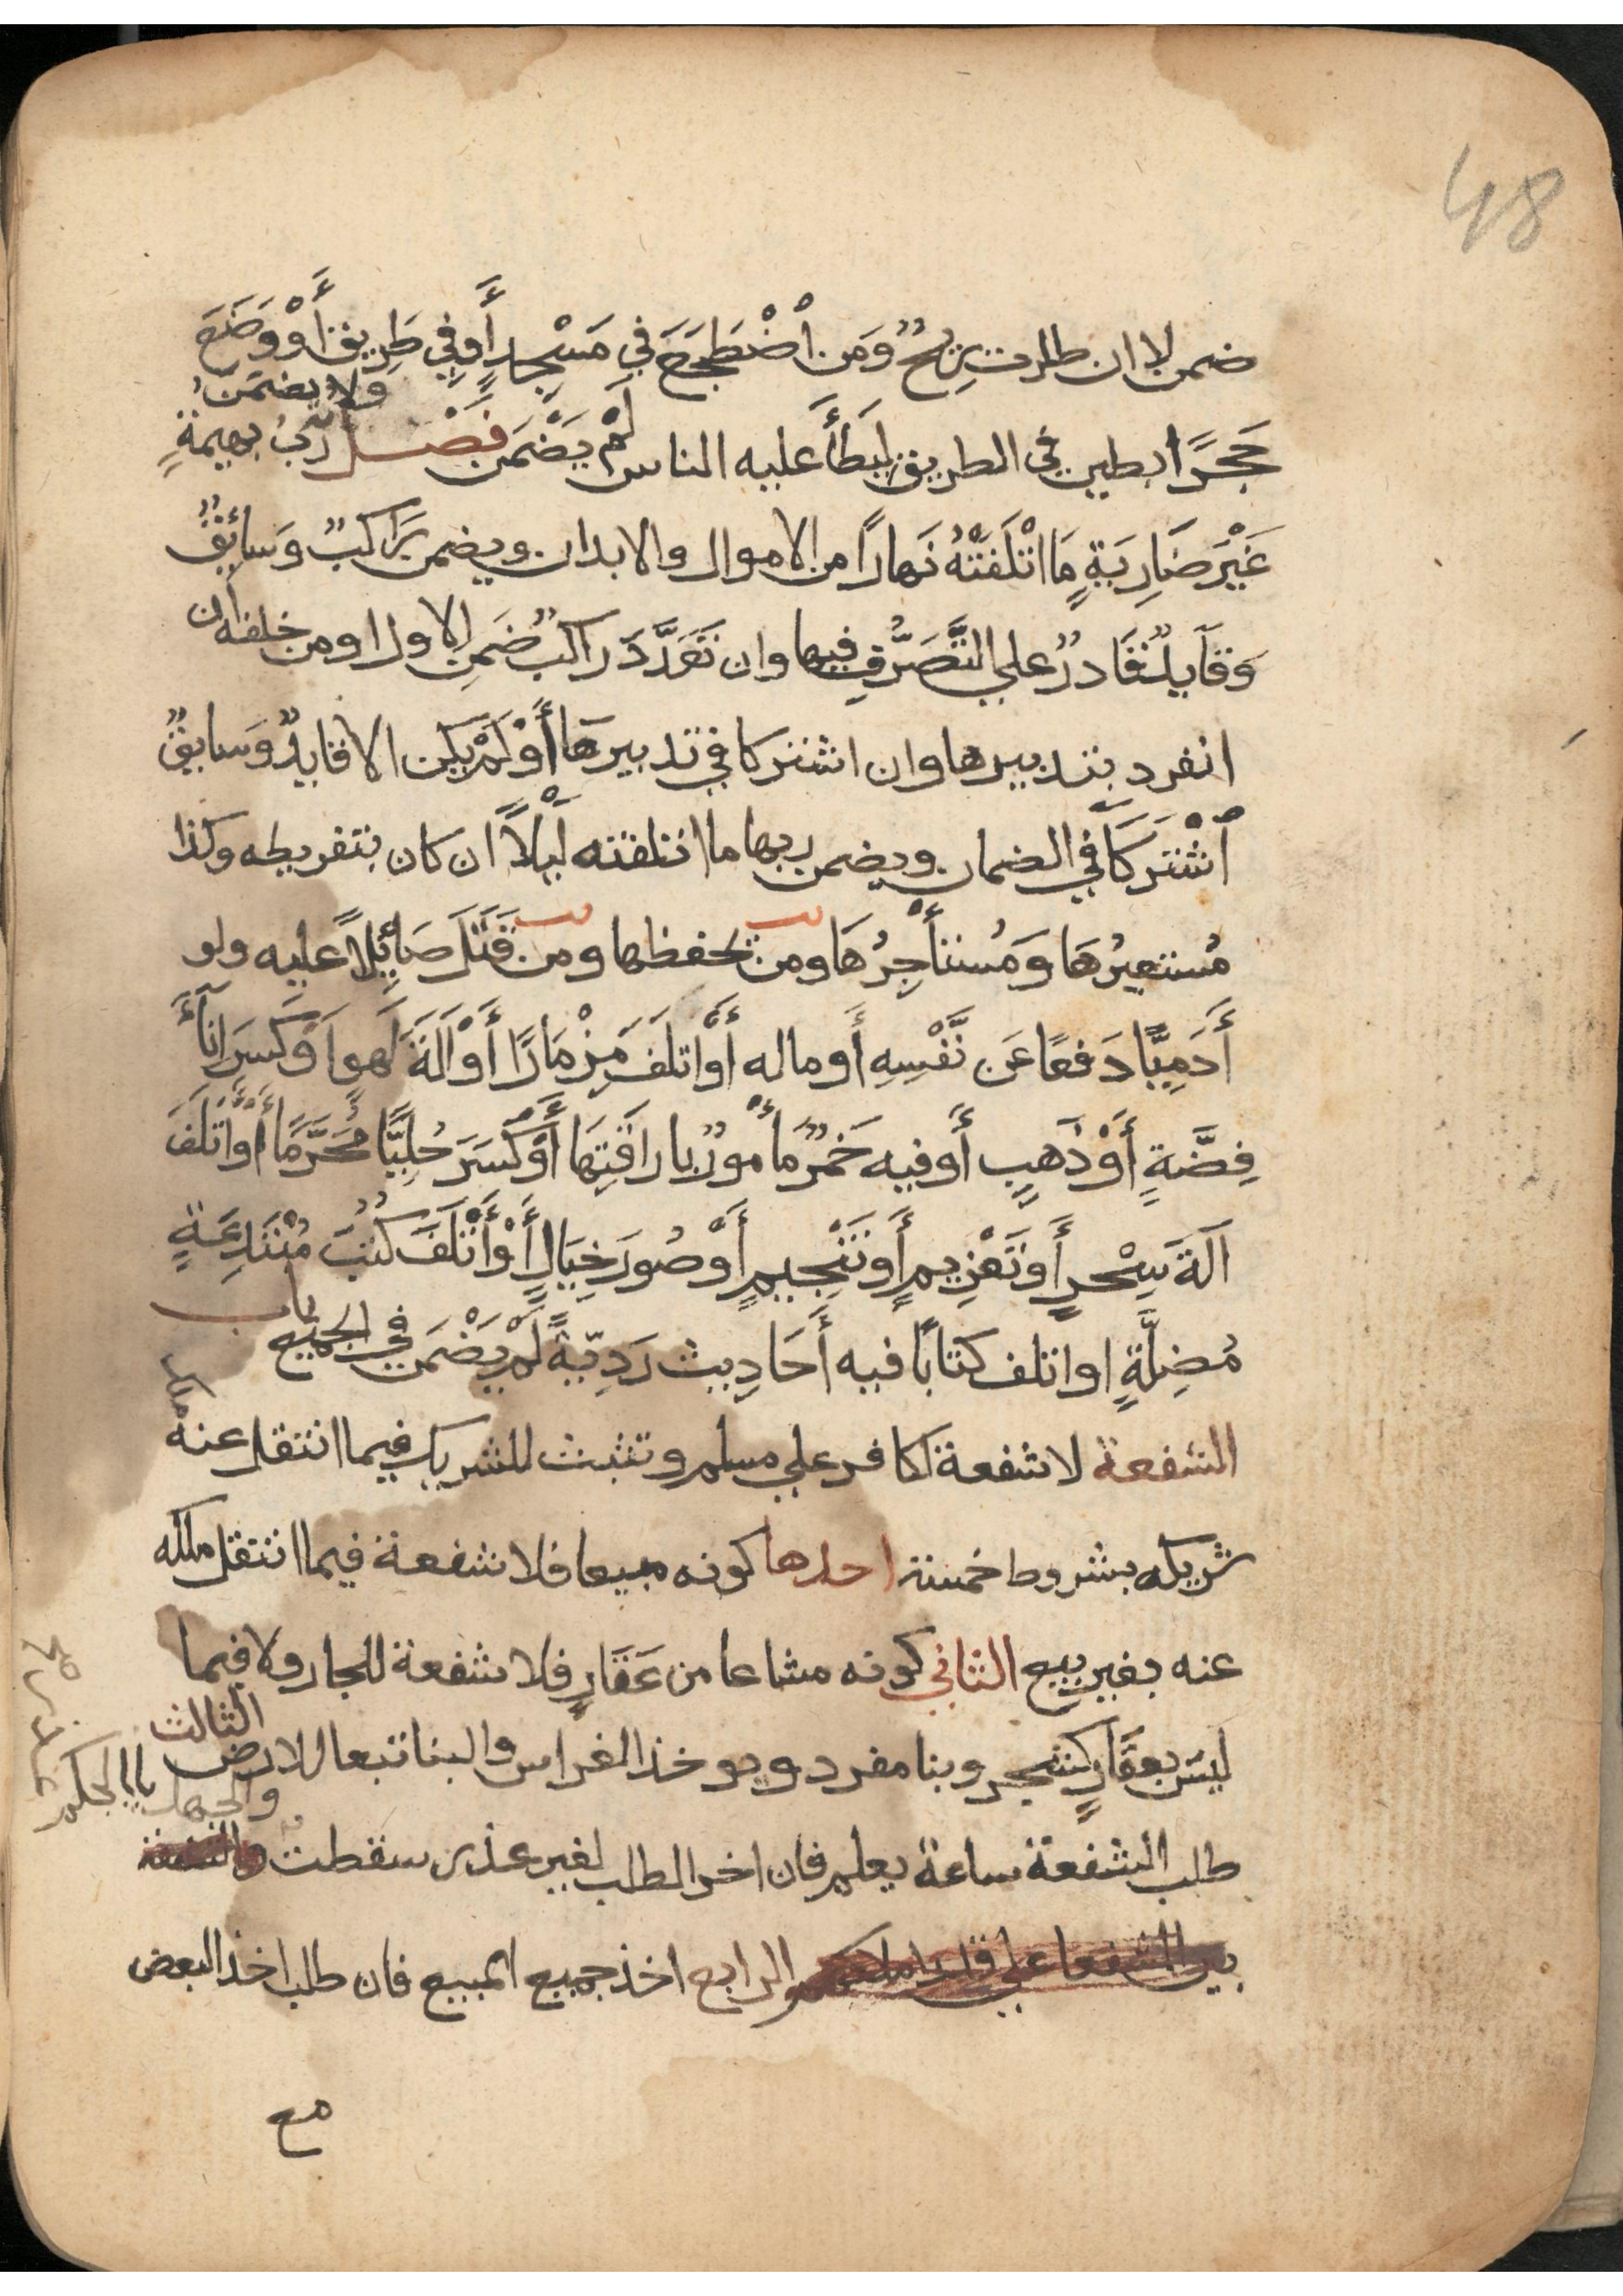 48
ضمن لا ان طارت بِرِيحٌ وَمَن اْضْطَجَعَ في مَسْجِدٍ أَوفِي طَرِيق أَوْ وَضَعَ
حَجَرًا بطين في الطريق لِيَطَأَ عليه الناس لَمْ يَضْمَن فَصْل ولا يضمن رَبُّ بهيمةٍ
غَيْرَ ضَارِبَةٍ مَا اتْلَفَتْهُ نَهارًا من الاموال والابدان ويضمن رَاكبٌ وَسَائِقٌ
وَقَآيدٌ قَادرٌ علي التَّصَرُّفِ فيها وان تَعَدَّدَ راكبٌ ضَمِن الاول او من خلفه ان
انفرد بتدبيرها وان اشتركا في تدبيرهَا أَوْ لَمْ يَكن الا قايدٌ وَسايقٌ
اْشْتَرَكَا في الضمان ويضمن ربها ما اتلفته لَيْلاً ان كان بتفريطه وكذا
مُستعيرُهَا وَمُستأجِرُهَا ومن يحفظها ومن قَتَلَ صَائِلًا عليه ولو
أَدَمِيًّا دَفعًا عَن نَّفْسِهِ أَو ماله أَوْ اتلَفَ مِزْمَارًا أَوْ آلَةَ لَهوٍ اَوْ كَسَرَ انَآءَ
فِضَّةٍ أَوْ ذَهَبٍ أَو فيه خَمْرٌ مَأْمورٌ باراقَتِهَا أَوْ كَسَرَ حُلِيًّا مُحَرَّمًا أَوْ أَتْلَفَ
آلَةَ سِحْرٍ أَو تَعْزِيمٍ أَو تَنْجيمٍ أَوْ صُوَرَ خِيَالٍ أَوْ أَتْلَفَ كُتُبَ مُبْتَدِعَةٍ
مُضِلَّةٍ او اتلف كتابًا فيه أَحَادِيث رَدِيّةً لَمْ يَضْمَن في الجميع باب
الشفعة لا شفعة لكافر علي مسلم وتثبت للشريك فيما انتقل عنه ملك
شريكه بشروط خمسة احدها كونه مبيعا فلا شفعة فيما انتقل ملكه
عنه بغير بيع الثاني كونه مشاعا من عَقَارٍ فلا شفعة للجار ولا فيما
ليسَ بعقارٍ كشجر وبنا مفرد ويوخذ الغراس والبنا تبعا للارض الثالث
طلب الشفعة ساعة يعلم فان اخر الطلب لغير عذر سقطت والجهل بالحكم
بين الشفعا علي قدر املاكهم الرابع اخذ جميع المبيع فان طلب اخذ البعض
مع